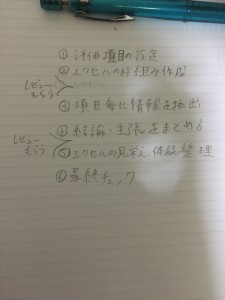 ① 評価項目の設定
② エクセルの枠組み作成
レビュー
もらう
③ 項目毎に情報を抽出
④ 結論・主張をまとめる
レビュー
もらう
⑤ エクセルの見栄え、体裁整理
⑥ 最終チェック